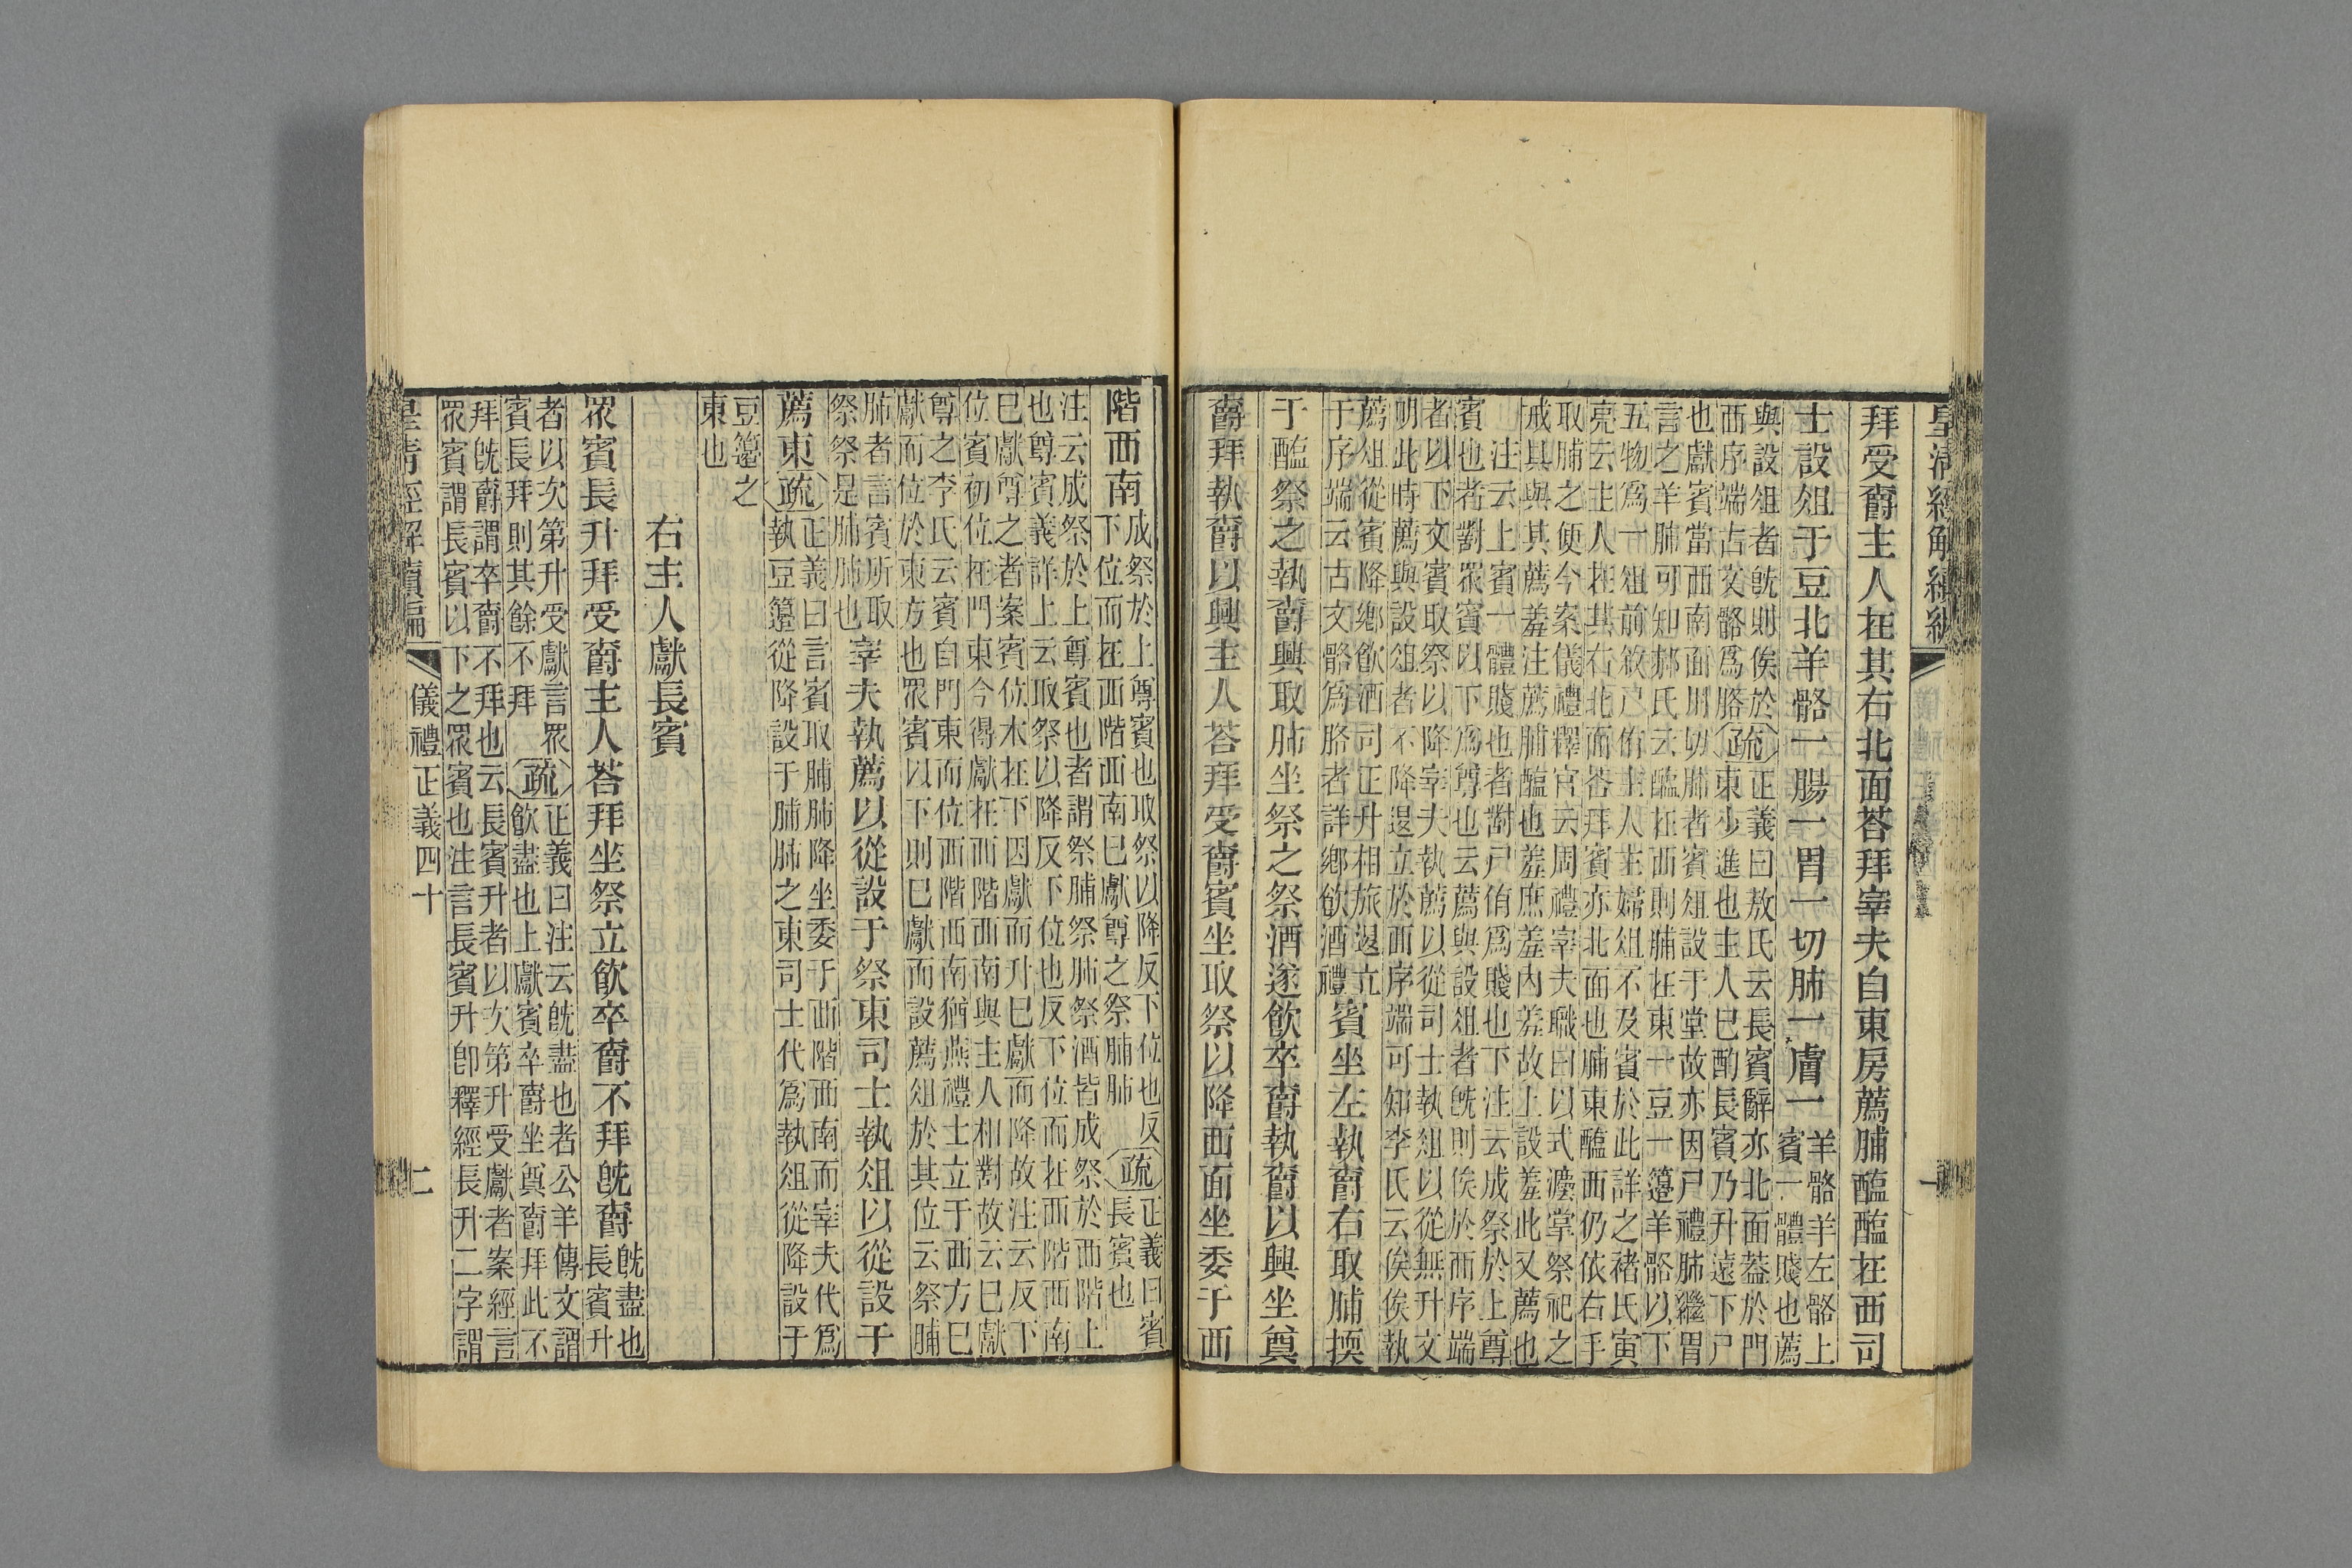 皇清經解續編
一
拜受爵主人在其右北面荅拜宰夫自東房薦脯醢醢在西司
士設俎于豆北羊骼一腸一胃一切肺一膚一
羊骼羊左骼上
賓一體賤也薦
與設俎者旣則俟於
西序端古文骼爲胳
疏
正義曰敖氏云長賓辭亦北面葢於門
東少進也主人已酌長賓乃升遠下尸
也獻賓當西南面則切肺者賓俎設于堂故亦因尸禮肺繼胃
言之羊肺可知郝氏云醢在西則脯在東一豆一籩羊骼以下
五物爲一俎前敘尸侑主人主婦俎不及賓於此詳之褚氏寅
亮云主人在其右北面荅拜賓亦北面也脯東醢西仍依右手
取脯之便今案儀禮釋官云周禮宰夫職曰以式灋掌祭祀之
戒具與其薦羞注薦脯醢也羞庶羞內羞故上設羞此又薦也
注云上賓一體賤也者對尸侑爲賤也下注云成祭於上尊
賓也者對眾賓以下爲尊也云薦與設俎者旣則俟於西序端
者以下文賓取祭以降宰夫執薦以從司士執俎以從無升文
明此時薦與設俎者不降退立於西序端可知李氏云俟俟執
薦俎從賓降鄉飲酒司正升相旅退立
于序端云古文骼爲胳者詳鄉飲酒禮
賓坐左執爵右取脯擩
于醢祭之執爵興取肺坐祭之祭酒遂飲卒爵執爵以興坐奠
爵拜執爵以興主人荅拜受爵賓坐取祭以降西面坐委于西
階西南
成祭於上尊賓也取祭以降反下位也反
下位而在西階西南已獻尊之祭脯肺
疏
正義曰賓
長賓也
注云成祭於上尊賓也者謂祭脯祭肺祭酒皆成祭於西階上
也尊賓義詳上云取祭以降反下位也反下位而在西階西南
已獻尊之者案賓位本在下因獻而升已獻而降故注云反下
位賓初位在門東今得獻在西階西南與主人相對故云已獻
尊之李氏云賓自門東而位西階西南猶燕禮士立于西方已
獻而位於東方也眾賓以下則已獻而設薦俎於其位云祭脯
肺者言賓所取
祭祭是脯肺也
宰夫執薦以從設于祭東司士執俎以從設于
薦東
疏
正義曰言賓取脯肺降坐委于西階西南而宰夫代爲
執豆籩從降設于脯肺之東司士代爲執俎從降設于
豆籩之
東也
右主人獻長賓
眾賓長升拜受爵主人荅拜坐祭立飲卒爵不拜旣爵
旣盡也
長賓升
者以次第升受獻言眾
賓長拜則其餘不拜
疏
正義曰注云旣盡也者公羊傳文謂
飲盡也上獻賓卒爵坐奠爵拜此不
拜旣爵謂卒爵不拜也云長賓升者以次第升受獻者案經言
眾賓謂長賓以下之眾賓也注言長賓升卽釋經長升二字謂
皇清經解續編
儀禮正義四十
二